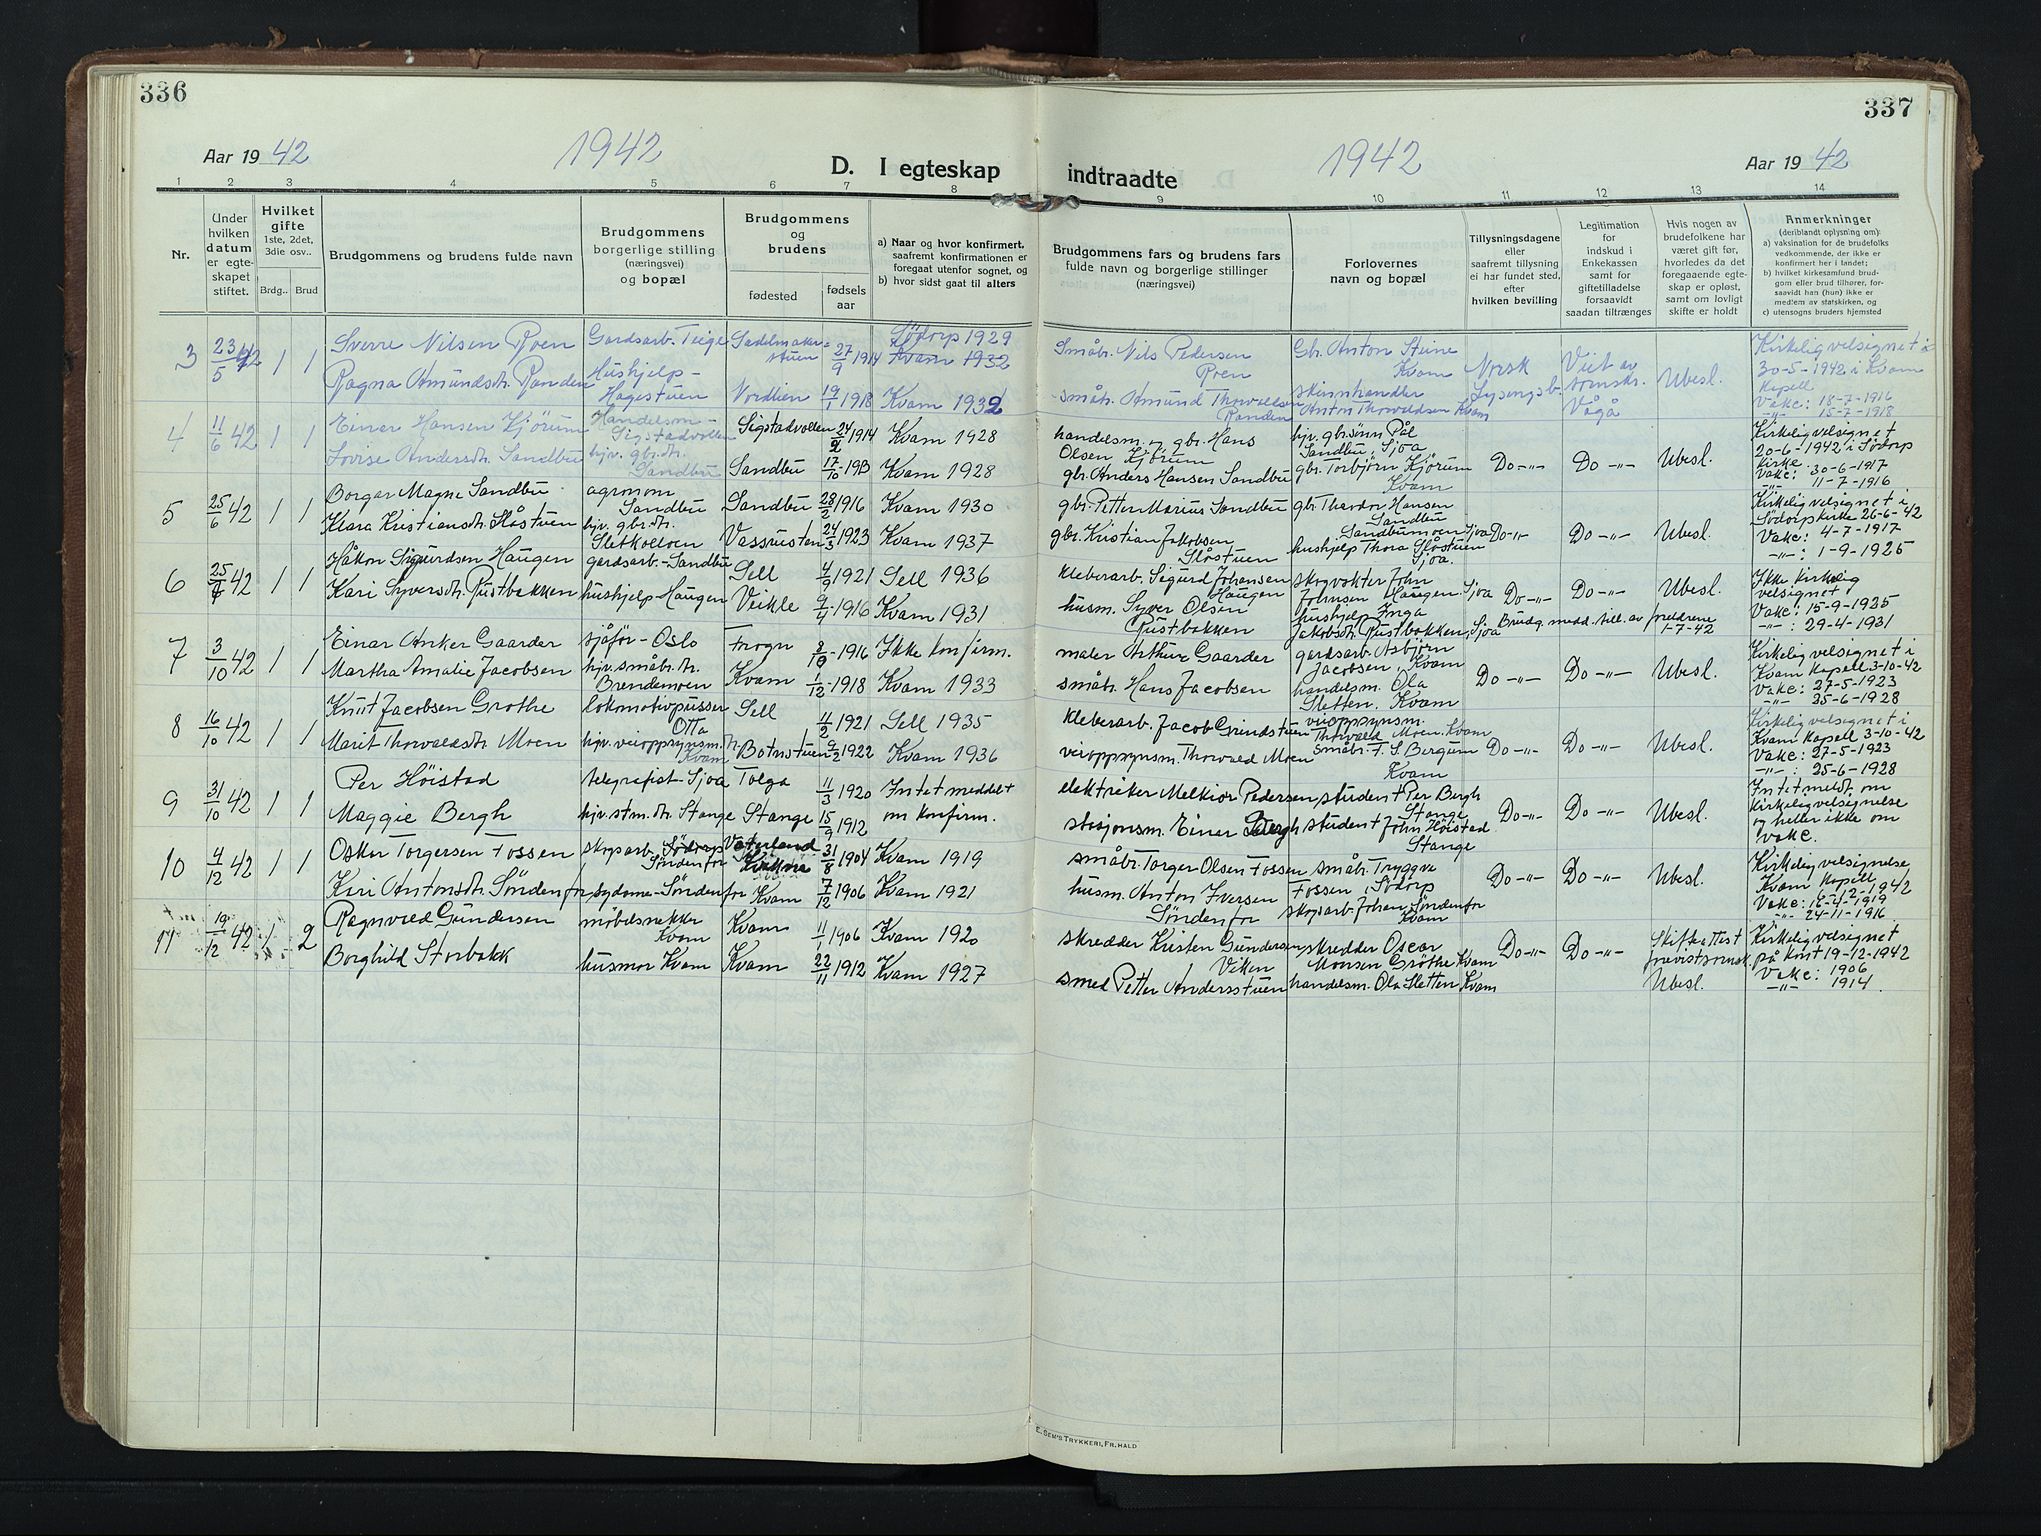 336
337
Aar 19 42
1942
D. I egteskap
indtraadte
1942
Aar 19 42
1 2 3 4 5 6 7 8
9 10 11 12 13 14
Nr.
Under hvilken datum er egteskapet stiftet.
Hvilket gifte 1ste, 2det, 3die osv..
Brdg.. Brud
Brudgommens og brudens fulde navn
Brudgommens borgerlige stilling (næringsvei) og bopæl
Brudgommens og brudens
fødested
fødsels aar
a) Naar og hvor konfirmert, saafremt konfirmationen er foregaat utenfor sognet, og
b) hvor sidst gaat til alters
Brudgommens fars og brudens fars fulde navn og borgerlige stillinger (næringsvei)
Forlovernes navn og bopæl
Tillysningsdagene eller saafremt tillysning ei har fundet sted, efter hvilken bevilling
Legitimation for indskud i Enkekassen samt for giftetilladelse forsaavidt saadan tiltrænges
Hvis nogen av brudefolkene har været gift før, hvorledes da det foregaaende egteskap er opløst, samt om lovligt skifte er holdt
Anmerkninger (deriblandt oplysning om):
a) vaksination for de brudefolks vedkommende, der ikke er konfirmert her i landet;
b) hvilket kirkesamfund brudgom eller brud tilhører, forsaavidt han (hun) ikke er medlem av statskirken, og
c) utensogns bruders hjemsted
3 23/5 42 1 1
Sverre Nilsen Roen Gardsarb. Teige Sadelmakerstuen 27/9 1914 Sødorp 1929 Kvam 1932
Ragna Amundsdt. Randen Hushjelp - Hagestuen Nordlien 19/1 1918 Kvam 1932
Småbr. Nils Pedersen Roen
småbr. Amund Thorvaldsen Randen
Gbr. Anton Steine Kvam
skinnhandler Anton Thorvaldsen Kvam
Norsk Lysingsb. Vist av sornskr. Vågå Ubesl.
Kirkelig velsignet i 30-5-1942 i Kvam kapell
Vakc: 18-7-1916
-"- 15-7-1918
4 11/6 42 1 1
Einar Hansen Kjørum Handelsm - Sigstadvollen Sigstadvollen 24/2 1914 Kvam 1928
Lovise Andersdt. Sandbu hjv. gbr. dt. Sandbu Sandbu 17/10 -1913 Kvam 1928
handelsm. og gbr. Hans Olsen Kjørum
gbr. Anders Hansen Sandbu
hjv. gbr. sønn Pål Sandbu, Sjoa
gbr. Torbjørn Kjørum Kvam
Do -"- Do -"- Ubesl.
Kirkelig velsignet 20-6-1942 i Sødorp kirke
Vakc: 30-6-1917
-"- 11-7-1916
5 25/6 42 1 1
Borgar Magne Sandbu agronom Sandbu Sandbu 28/2 1916 Kvam 1930
Klara Kristiansdt. Slåstuen hjv. gbr. dt. Sletkolloen Vassrusten 24/3 1923 Kvam 1937
gbr. Petter Marius Sandbu
gbr. Kristian Jakobsen Slåstuen
gbr. Theodor Hansen Sandbu Sandbumoen, Sjoa
hushjelp Thora Slåstuen Sjoa.
Do -"- Do -"- Ubesl.
Kirkelig velsignet i Sødorp kirke 26-6-42
Vakc: 4-7-1917
-"- : 1-9-1925
6 25/7 42 1 1
Håkon Sigurdsen Haugen gardsarb. - Sandbu Sell 4/9 1921 Sell 1936
Kari Syversdt. Rustbakken hushjelp - Haugen Veikle 9/4 -1916 Kvam 1931
kleberarb. Sigurd Johansen Haugen
husm. Syver Olsen Rustbakken
skogvokter John Johnsen Haugen, Sjoa
hushjelp Inga Jakobsdt. Rustbakken, Sjoa
Do -"- Do -"- Ubesl.
Brudg. medd. till. av foreldrene 1-7-42
Ikke kirkelig velsignet
Vakc: 15-9-1925
-"- : 29-4-1931
7 3/10 42 1 1
Einar Anker Gaarder sjåfør - Oslo Frogn 8/10 -1916 Ikke konfirm.
Martha Amalie Jacobsen hjv. småbr. dt. Brendemoen Kvam 1/12 -1918 Kvam 1933
maler Arthur Gaarder
småbr. Hans Jacobsen
gardsarb. Asbjørn Jacobsen, Kvam
handelsm. Ola Sletten, Kvam
Do -"- Do -"- Ubesl.
Kirkelig velsignet i Kvam kapell 3-10-42
Vakc: 27-5-1923
-"- 25-6-1928
8 16/10 42 1 1
Knut Jacobsen Grothe lokomotivpusser Otta Sell 11/2 1921 Sell 1935
Marit Thorvaldsdt. Moen hjv. veioppsynsm. dt. Kvam Botnstuen 9/2 1922 Kvam 1936
kleberarb. Jacob Grindstuen
veioppsynsm. Thorvald Moen
veioppsynsm. Thorvald Moen. Kvam
småbr. T. S. Bergum Kvam
Do -"- Do -"- Ubesl.
Kirkelig velsignet i Kvam kapell 3-10-42
Vakc: 27-5-1923
-"- : 25-6-1928
9 31/10 42 1 1
Per Høistad telegrafist - Sjoa Tolga 11/3 1920 Intet meddelt
Maggie Bergh hjv. stm. dt. Stange Stange 15/9 1912 om konfirm.
elektriker Melkior Pedersen
stasjonsm. Einar Bergh
student Per Bergh Stange
student John Høistad Stange
Do -"- Do -"- Ubesl.
Intet meldt om kirkelig velsignelse og heller ikke om vakc.
10 4/12 42 1 1
Oskar Torgersen Fossen skogsarb. Sødorp Søndenfor Vaterland 31/8 1904 Kvam 1919
Kari Antonsdt. Søndenfor sydame - Søndenfor Kvam 7/12 1906 Kvam 1921
småbr. Torger Olsen Fossen
husm. Anton Iversen Søndenfor
småbr. Tryggve Fossen, Sødorp
skogsarb. Johan Søndenfor Kvam
Do -"- Do -"- Ubesl.
Kirkelig velsignelse Kvam kapell 6-12-1942
Vakc: 16-4-1919
-"- 24-11-1916
11 19/12 42 1 2
Ragnvald Gundersen møbelsnekker Kvam Kvam 11/1 1906 Kvam 1920
Borghild Storbakk husmor Kvam Kvam 22/11 1912 Kvam 1927
skredder Kristen Gundersen Viken
smed Petter Andersstuen
skredder Oscar Monsen Grøthe Kvam
handelsm. Ola Sletten Kvam
Do -"- Do -"- Skifteattest framvist sornsk. Ubesl.
Kirkelig velsignet på kont 19-12-1942
Vakc: 1906
-"- 1914
E. SEM'S TRYKKERI, FR.HALD